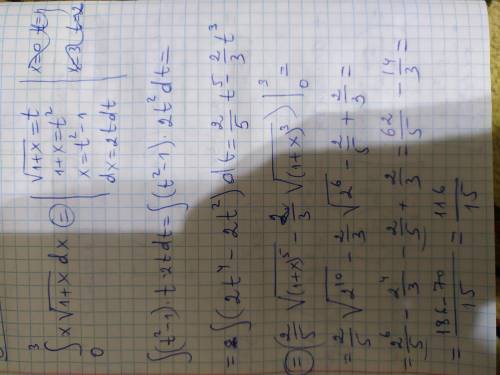 ∫₀³ x√(1+x) dx ⊜ | √(1+x) = t | x=0 t=1 |
1+x = t² | x=3 t=2
x = t² - 1
dx = 2tdt
∫(t²-1)·t·2tdt = ∫(t²-1)·2t²dt =
= ∫(2t⁴ - 2t²)dt = 2/5 t⁵ - 2/3 t³
⊜ (2/5 √(1+x)⁵ - 2/3 √(1+x)³) |₀³ =
= 2/5 √2¹⁰ - 2/3 √2⁶ - 2/5 + 2/3 =
= 2⁶/5 - 2⁴/3 - 2/5 + 2/3 = 62/5 - 14/3 =
= (186-70)/15 = 116/15